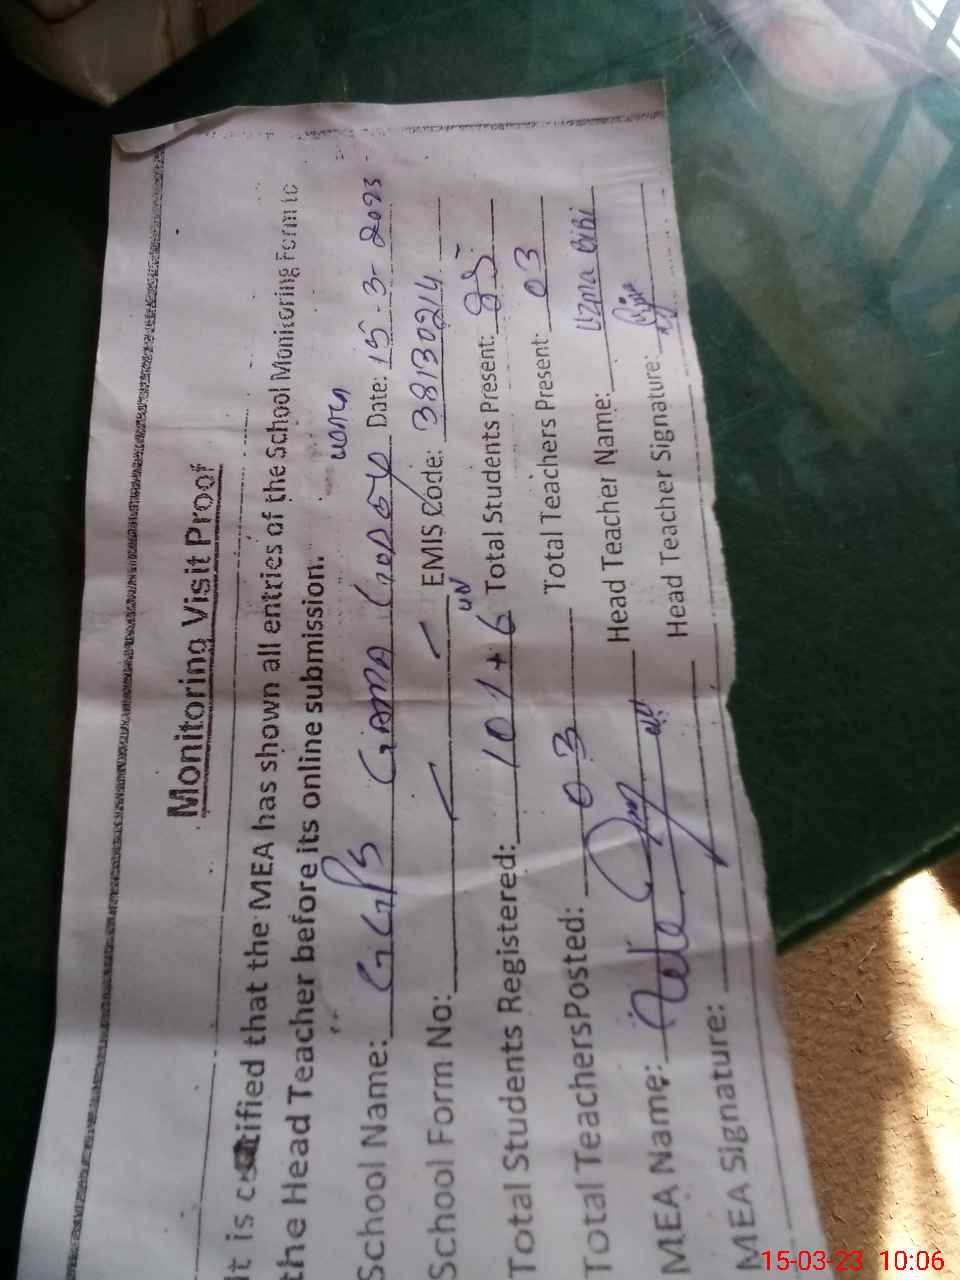 Monitoring Visit Proof
It is certified that the MEA has shown all entries of the School Monitoring Form to
the Head Teacher before its online submission.
School Name: GGPS GAMA Date: 15-3-2023
School Form No: EMIS Code: 38130214
Total Students Registered: 101+6 Total Students Present: 85
Total TeachersPosted: 03 Total Teachers Present: 03
MEA Name: Head Teacher Name: Uzma BiBi
MEA Signature: Head Teacher Signature:
15-03-23 10:06